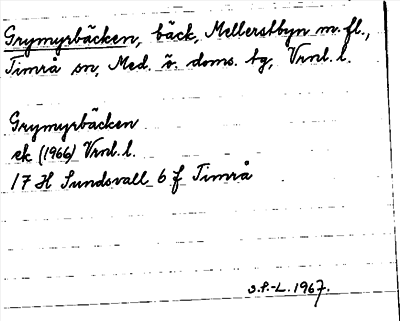 Grymyrbäcken, bäck, Mellerstbyn m.fl.,
Timrå sn, Med. ö. doms. tg, Vrnl. l.
Grymyrbäcken
ek (1966) Vrnl. l.
17 H Sundsvall 6 f Timrå
S.P.-L. 1967.